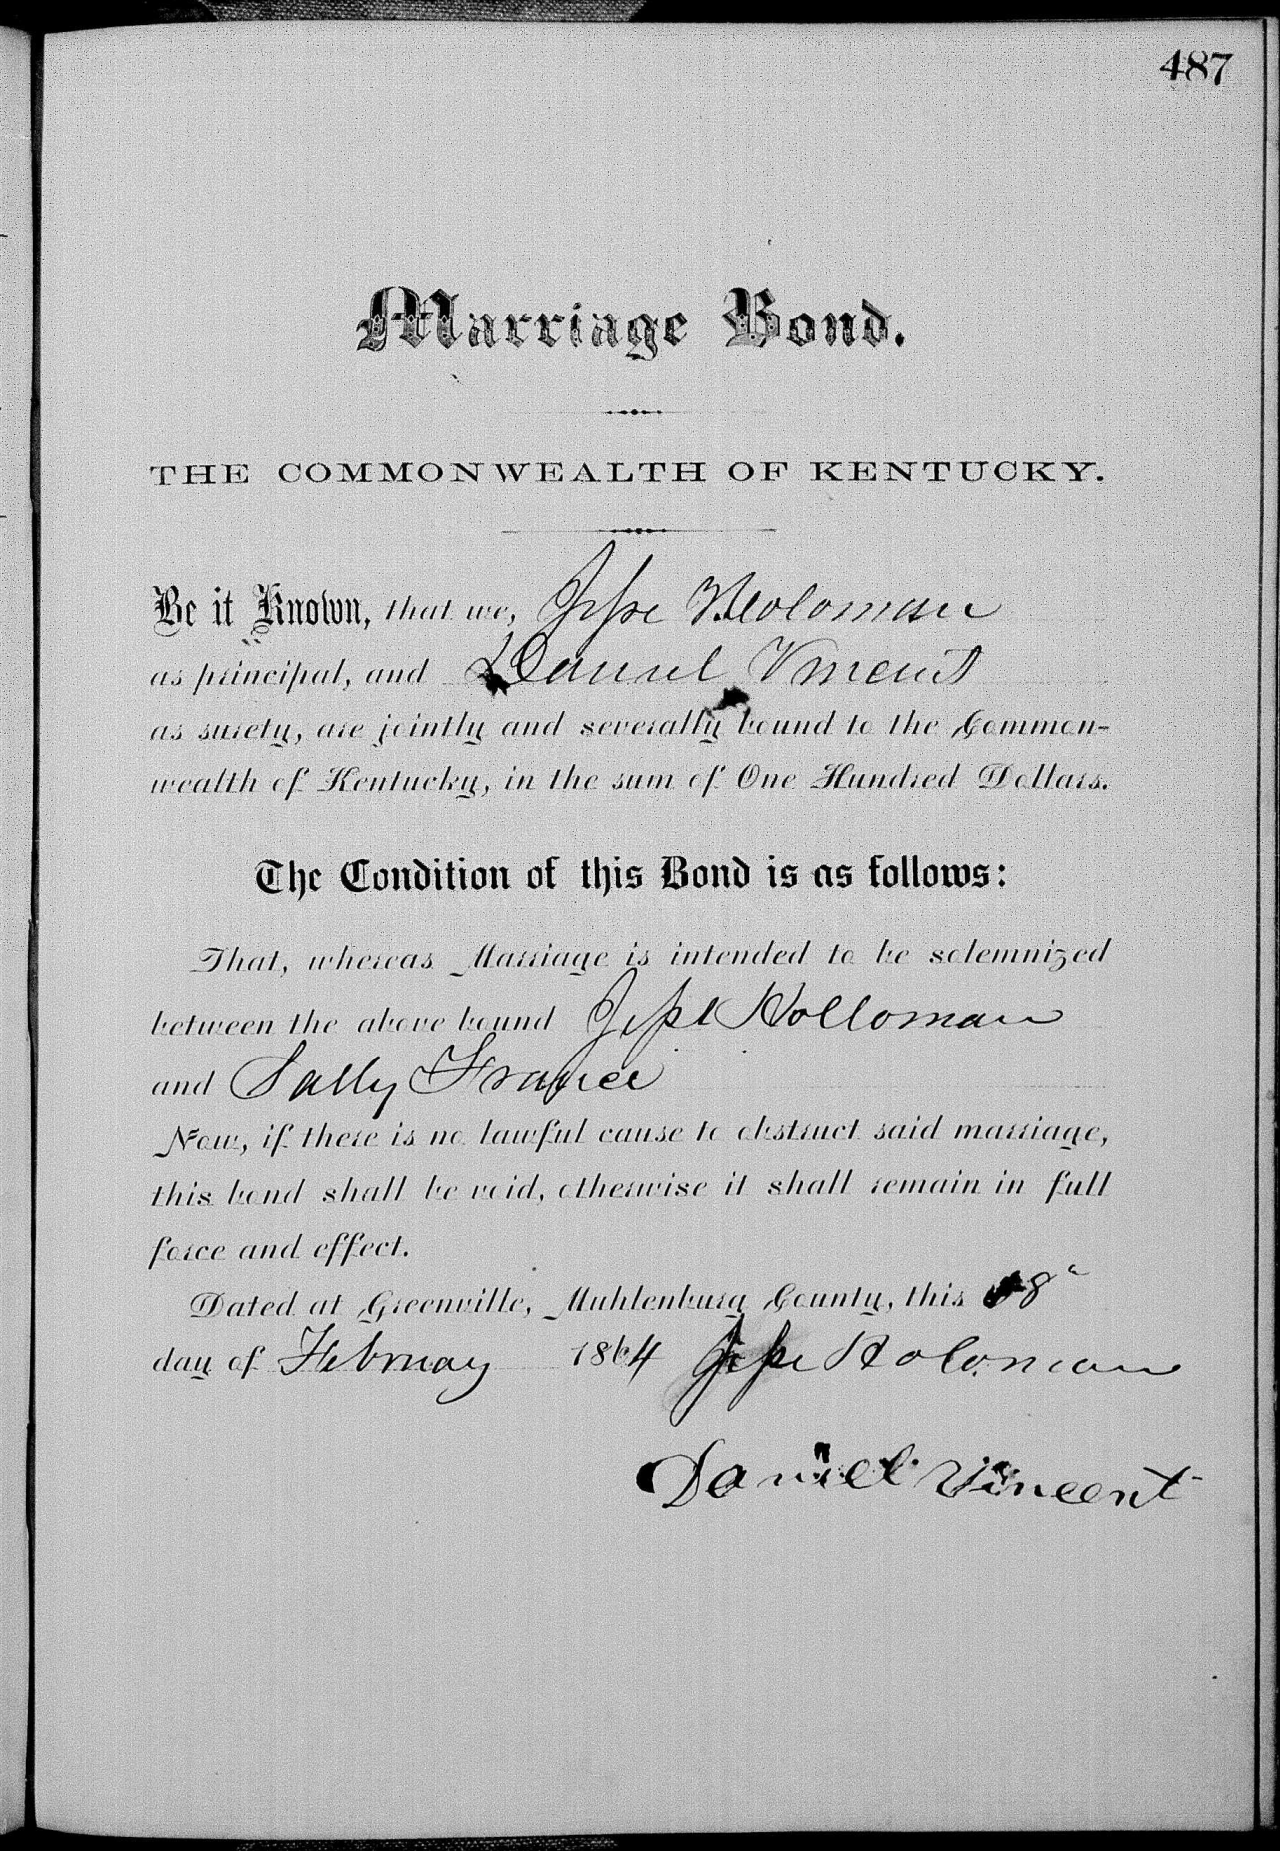 487
Marriage Bond.
THE COMMONWEALTH OF KENTUCKY.
Be it Known, that we, Jesse Holoman
as principal, and Daniel Vincent
as surety, are jointly and severally bound to the Common-
wealth of Kentucky, in the sum of One Hundred Dollars.
The Condition of this Bond is as follows:
That, whereas Marriage is intended to be solemnized
between the above bound Jesse Holloman
and Sally France
Now, if there is no lawful cause to obstruct said marriage,
this bond shall be void, otherwise it shall remain in full
force and effect.
Dated at Greenville, Muhlenburg County, this 8"
day of Februay 1864 Jesse Holoman
Daniel Vincent